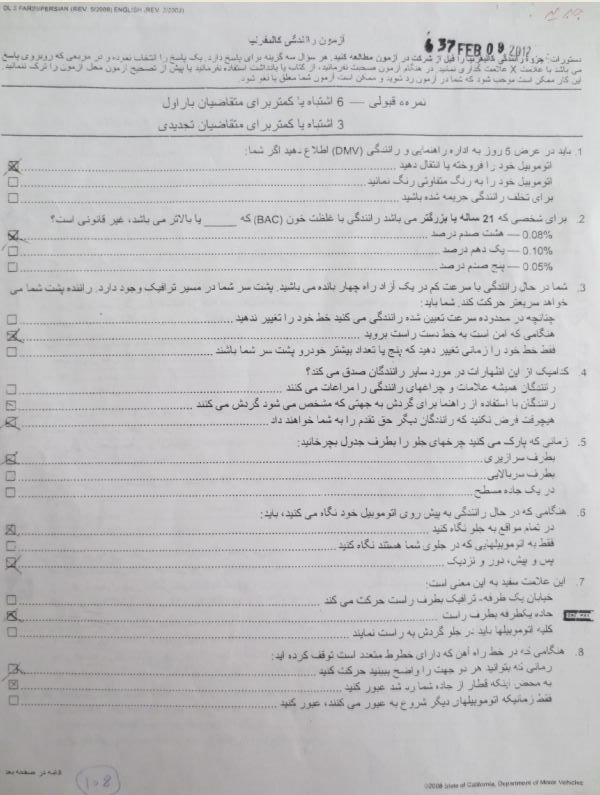 DL 5 FARSI/PERSIAN (REV. 5/2008) ENGLISH (REV. 2/2008)
آزمون رانندگی کالیفرنیا
6 37 FEB 09 2012
دستورات: جزوه رانندگی کالیفرنیا را قبل از شرکت در آزمون مطالعه کنید. هر سؤال سه گزینه برای پاسخ دارد. یک پاسخ را انتخاب نموده و در مربعی که روبروی پاسخ
می باشد با علامت X علامت گذاری نمائید. در هنگام آزمون صحبت نفرمائید، از کتاب یا یادداشت استفاده نفرمائید یا پیش از تصحیح آزمون محل آزمون را ترک ننمائید.
این کار ممکن است موجب شود که شما در آزمون رد شوید و ممکن است آزمون شما معلق یا لغو شود.
نمره قبولی — 6 اشتباه یا کمتر برای متقاضیان بار اول
3 اشتباه یا کمتر برای متقاضیان تجدیدی
1. باید در عرض 5 روز به اداره راهنمایی و رانندگی (DMV) اطلاع دهید اگر شما:
اتوموبیل خود را فروخته یا انتقال دهید
اتوموبیل خود را به رنگ متفاوتی رنگ نمائید
برای تخلف رانندگی جریمه شده باشید
2. برای شخصی که 21 ساله یا بزرگتر می باشد رانندگی با غلظت خون (BAC) که _____ یا بالاتر می باشد، غیر قانونی است؟
0.08% — هشت صدم درصد
0.10% — یک دهم درصد
0.05% — پنج صدم درصد
3. شما در حال رانندگی با سرعت کم در یک آزاد راه چهار بانده می باشید. پشت سر شما در مسیر ترافیک وجود دارد. راننده پشت شما می
خواهد سریعتر حرکت کند. شما باید:
چنانچه در محدوده سرعت تعیین شده رانندگی می کنید خط خود را تغییر ندهید
هنگامی که امن است به خط دست راست بروید
فقط خط خود را زمانی تغییر دهید که پنج یا تعداد بیشتر خودرو پشت سر شما باشند
4. کدامیک از این اظهارات در مورد سایر رانندگان صدق می کند؟
رانندگان همیشه علامات و چراغهای رانندگی را مراعات می کنند
رانندگان با استفاده از راهنما برای گردش به جهتی که مشخص می شود گردش می کنند
هیچوقت فرض نکنید که رانندگان دیگر حق تقدم را به شما خواهند داد
5. زمانی که پارک می کنید چرخهای جلو را بطرف جدول بچرخانید:
بطرف سرازیری
بطرف سربالایی
در یک جاده مسطح
6. هنگامی که در حال رانندگی به پیش روی اتوموبیل خود نگاه می کنید، باید:
در تمام مواقع به جلو نگاه کنید
فقط به اتوموبیلهایی که در جلوی شما هستند نگاه کنید
پس و پیش، دور و نزدیک
7. این علامت سفید به این معنی است:
خیابان یک طرفه- ترافیک بطرف راست حرکت می کند
جاده یکطرفه بطرف راست
کلیه اتوموبیلها باید در جلو گردش به راست نمایند
8. هنگامی که در خط راه آهن که دارای خطوط متعدد است توقف کرده اید:
زمانی که بتوانید هر دو جهت را واضح ببینید حرکت کنید
به محض اینکه قطار از جاده شما رد شد عبور کنید
فقط زمانیکه اتوموبیلهای دیگر شروع به عبور می کنند، عبور کنید
ادامه در صفحه بعد
108
©2008 State of California, Department of Motor Vehicles